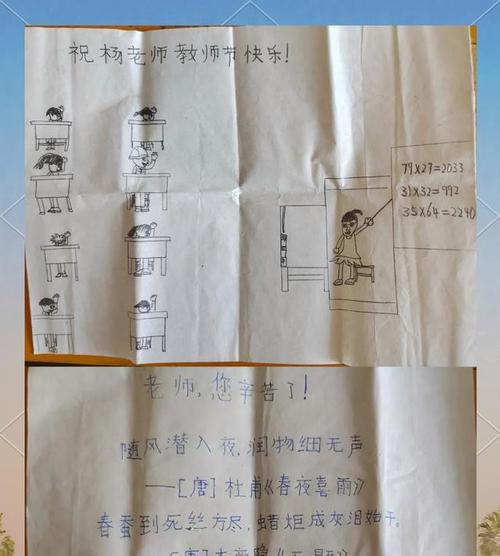 祝杨老师教师节快乐!
79×27=2033
31×32=992
35×64=2240
老师,您辛苦了!
随风潜入夜,润物细无声
——[唐]杜甫《春夜喜雨》
春蚕到死丝方尽,蜡炬成灰泪始干。